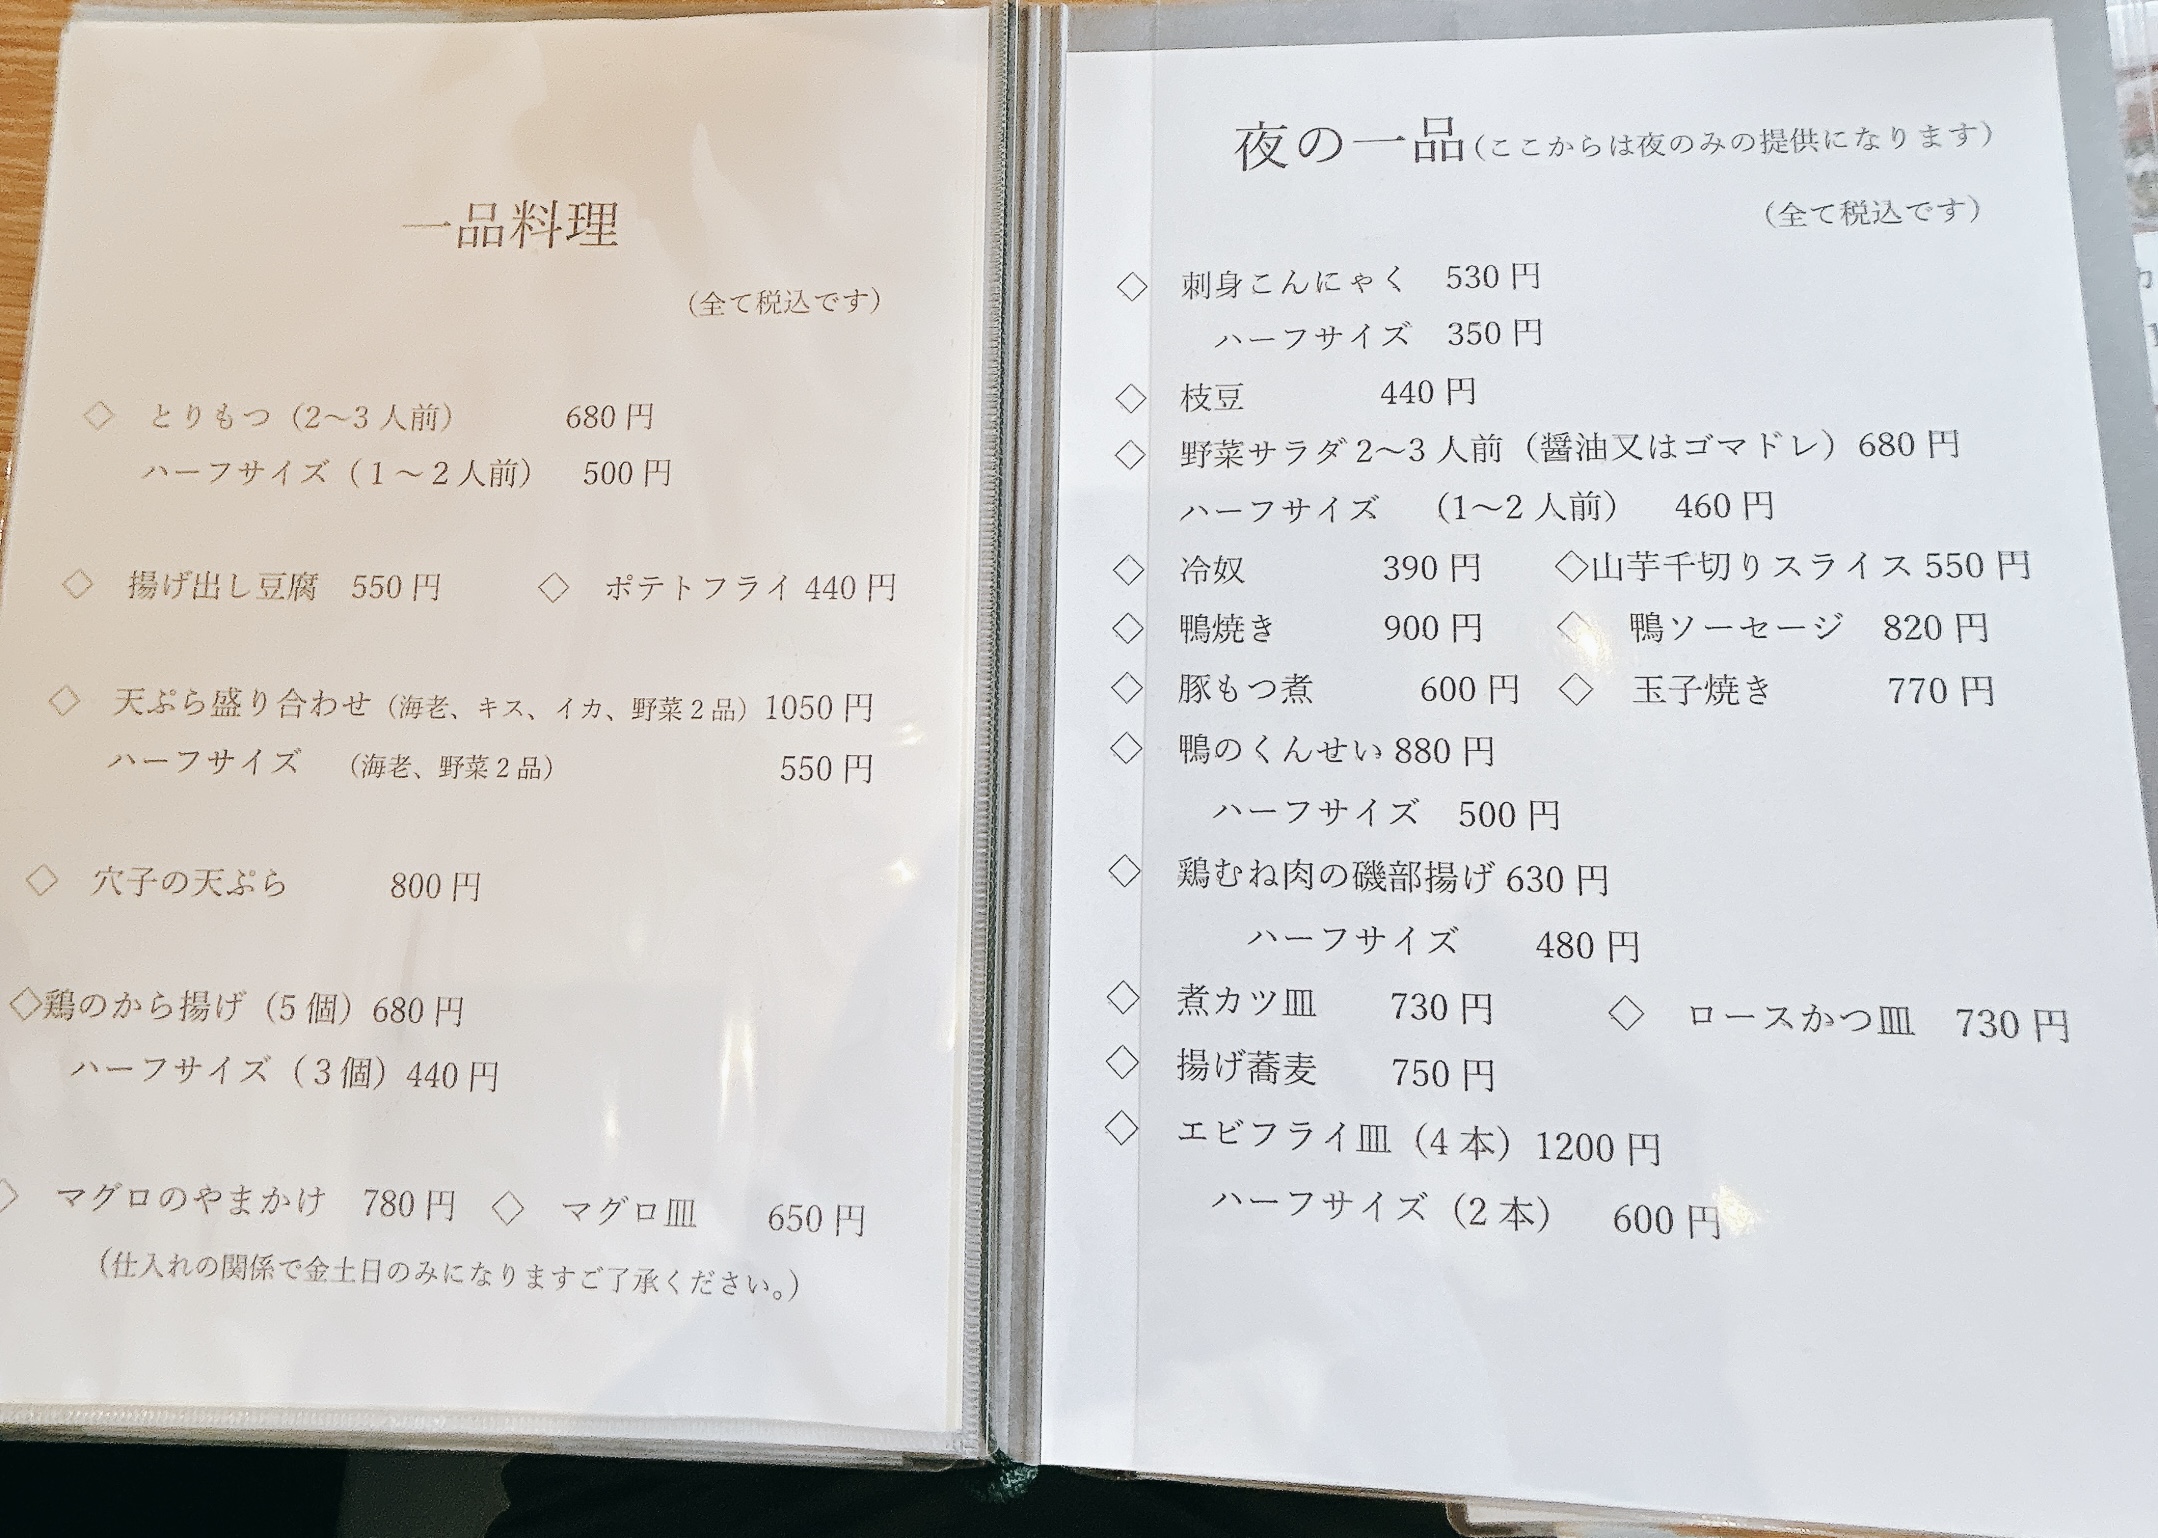 一品料理
(全て税込です)
◇ とりもつ（2～3人前） 680円
ハーフサイズ（1～2人前） 500円
◇ 揚げ出し豆腐 550円 ◇ ポテトフライ 440円
◇ 天ぷら盛り合わせ（海老、キス、イカ、野菜2品）1050円
ハーフサイズ （海老、野菜2品） 550円
◇ 穴子の天ぷら 800円
◇鶏のから揚げ（5個）680円
ハーフサイズ（3個）440円
◇ マグロのやまかけ 780円 ◇ マグロ皿 650円
（仕入れの関係で金土日のみになりますご了承ください。）
夜の一品(ここからは夜のみの提供になります)
(全て税込です)
◇ 刺身こんにゃく 530円
ハーフサイズ 350円
◇ 枝豆 440円
◇ 野菜サラダ2～3人前（醤油又はゴマドレ）680円
ハーフサイズ （1～2人前） 460円
◇ 冷奴 390円 ◇山芋千切りスライス 550円
◇ 鴨焼き 900円 ◇ 鴨ソーセージ 820円
◇ 豚もつ煮 600円 ◇ 玉子焼き 770円
◇ 鴨のくんせい 880円
ハーフサイズ 500円
◇ 鶏むね肉の磯部揚げ 630円
ハーフサイズ 480円
◇ 煮カツ皿 730円 ◇ ロースかつ皿 730円
◇ 揚げ蕎麦 750円
◇ エビフライ皿（4本）1200円
ハーフサイズ（2本） 600円